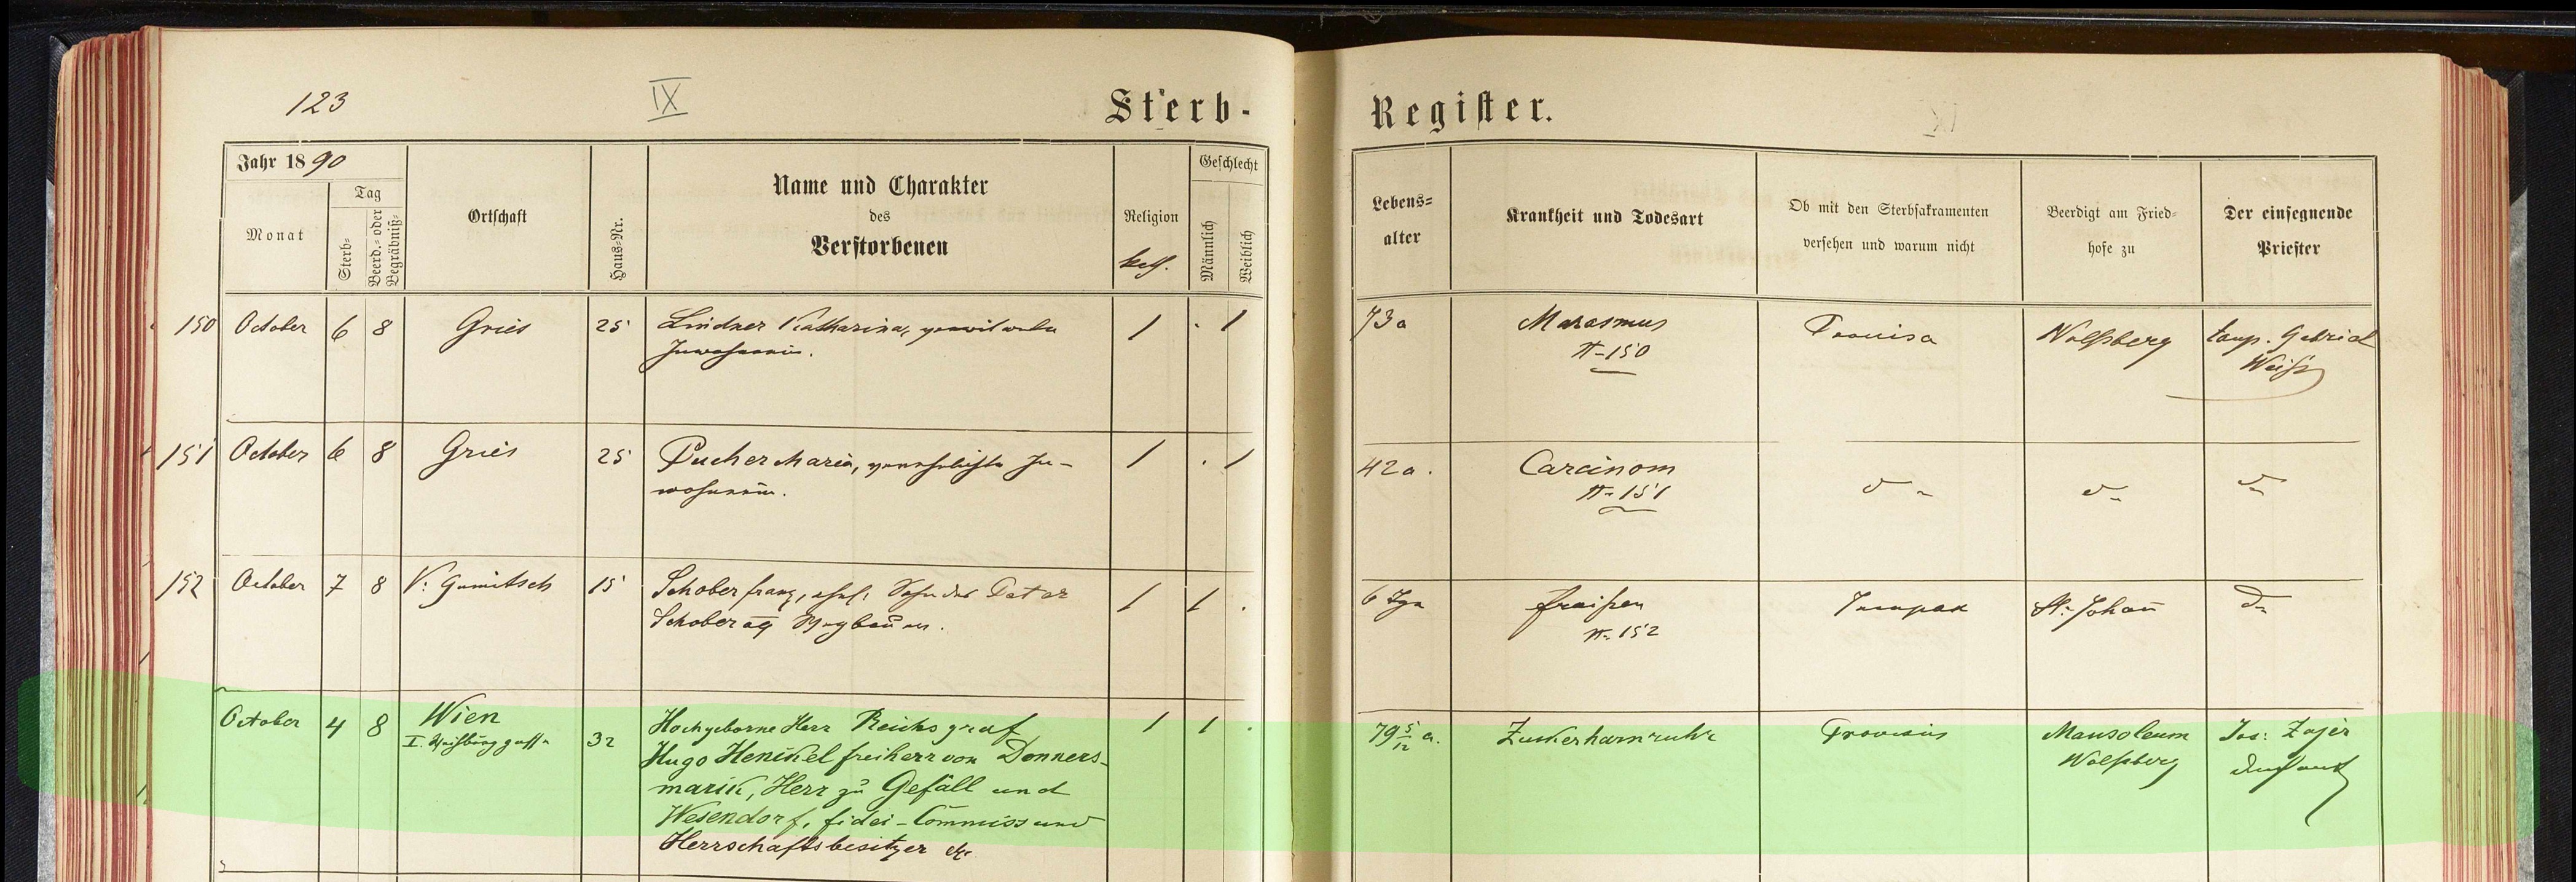 123
IX
Sterb-
Register.
Jahr 1890
Monat
Tag
Sterb-
Beerd.- oder
Begräbniß-
Ortschaft
Haus-Nr.
Name und Charakter
des
Verstorbenen
Religion
kath.
Geschlecht
Männlich
Weiblich
Lebens-
alter
Krankheit und Todesart
Ob mit den Sterbsakramenten
versehen und warum nicht
Beerdigt am Fried-
hofe zu
Der einsegnende
Priester
150 October 6 8 Gries 25 Lindner Katharina, verwitwete 1 . 1 73 a Marasmus Provisa Wolfsberg Gabriel
Inwohnerin. π-150 Weiß
151 October 6 8 Gries 25 Pucher Maria, verehelichte In- 1 . 1 42 a. Carcinom
wohnerin. π-151
152 October 7 8 15 Schober Franz, ehel. Sohn des Peter 1 1 . 6 Tge Fraisen St. Johann
Schober π-152
October 4 8 Wien 32 Hochgeborne Herr Reichsgraf 1 1 . 79 5/12 a. Zuckerharnruhr Provisus Mausoleum Jos:
I. Weihburggasse Hugo Henckel Freiherr von Donners- Wolfsberg
marck, Herr zu Gefäll und
Wesendorf, Fidei-Commiss und
Herrschaftsbesitzer etc